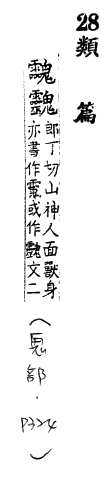 28類 篇
郎丁切山神人面獸身
亦書作或作文二
(鬼部.P324)